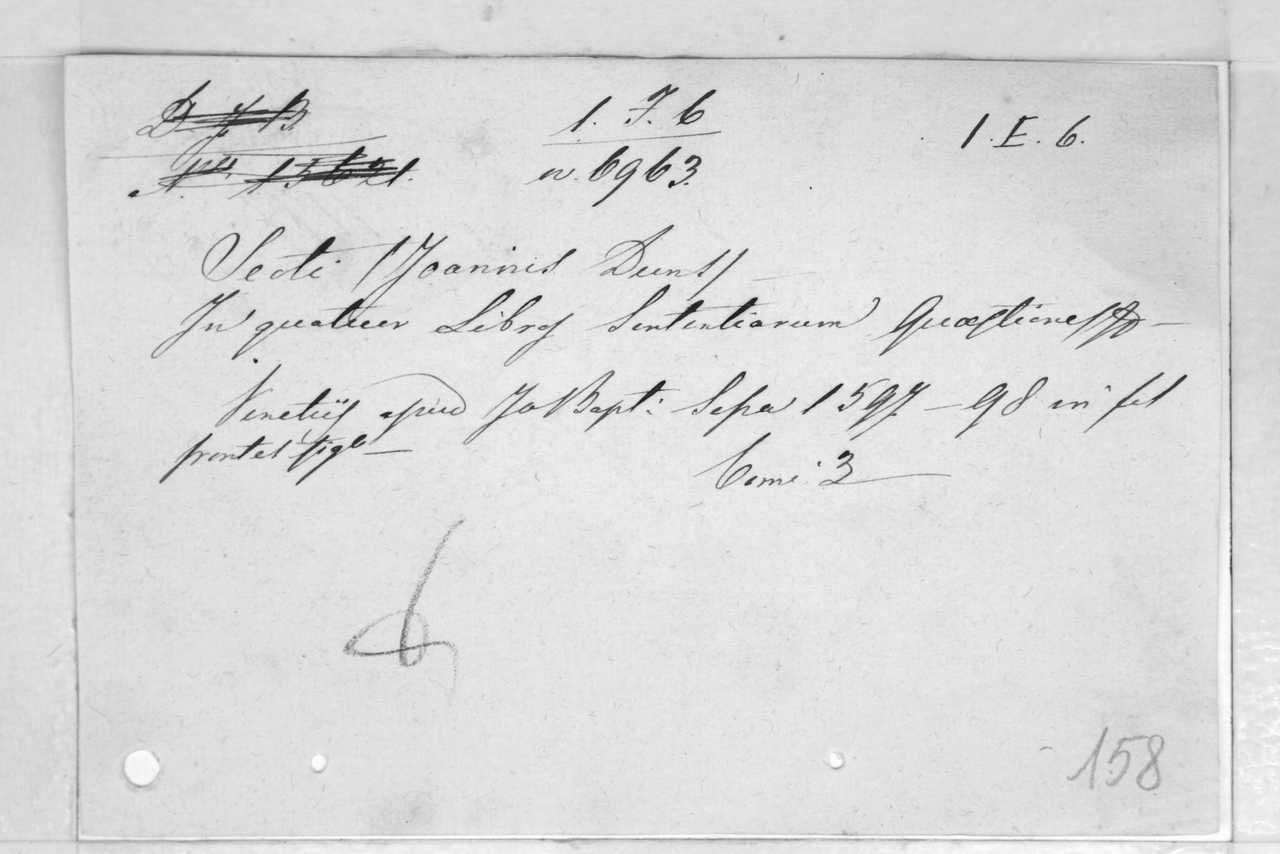 D J 13
N.ro 15621.
1. F. 6
n. 6963.
1. E. 6.
Scoti (Joannis Duns) —
In quatuor Libros Sententiarum Quæstiones &c —
Venetijs apud Jo Bapt: Sepa 1597 — 98 in fol
frontes fig.to —
Tomi: 3
158